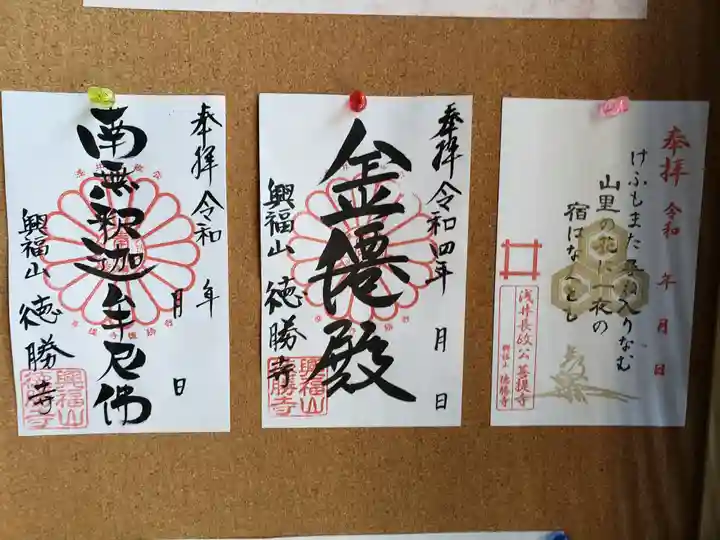 奉拝 令和 年 月 日
南無釈迦牟尼佛
興福山 徳勝寺
興福山
徳勝寺
奉拝 令和四年 月 日
金僊殿
興福山 徳勝寺
興福山
徳勝寺
奉拝 令和 年 月 日
けふもまた
入りなむ
山里の花に一夜の
宿はなくとも
浅井長政公菩提寺
興福山 徳勝寺